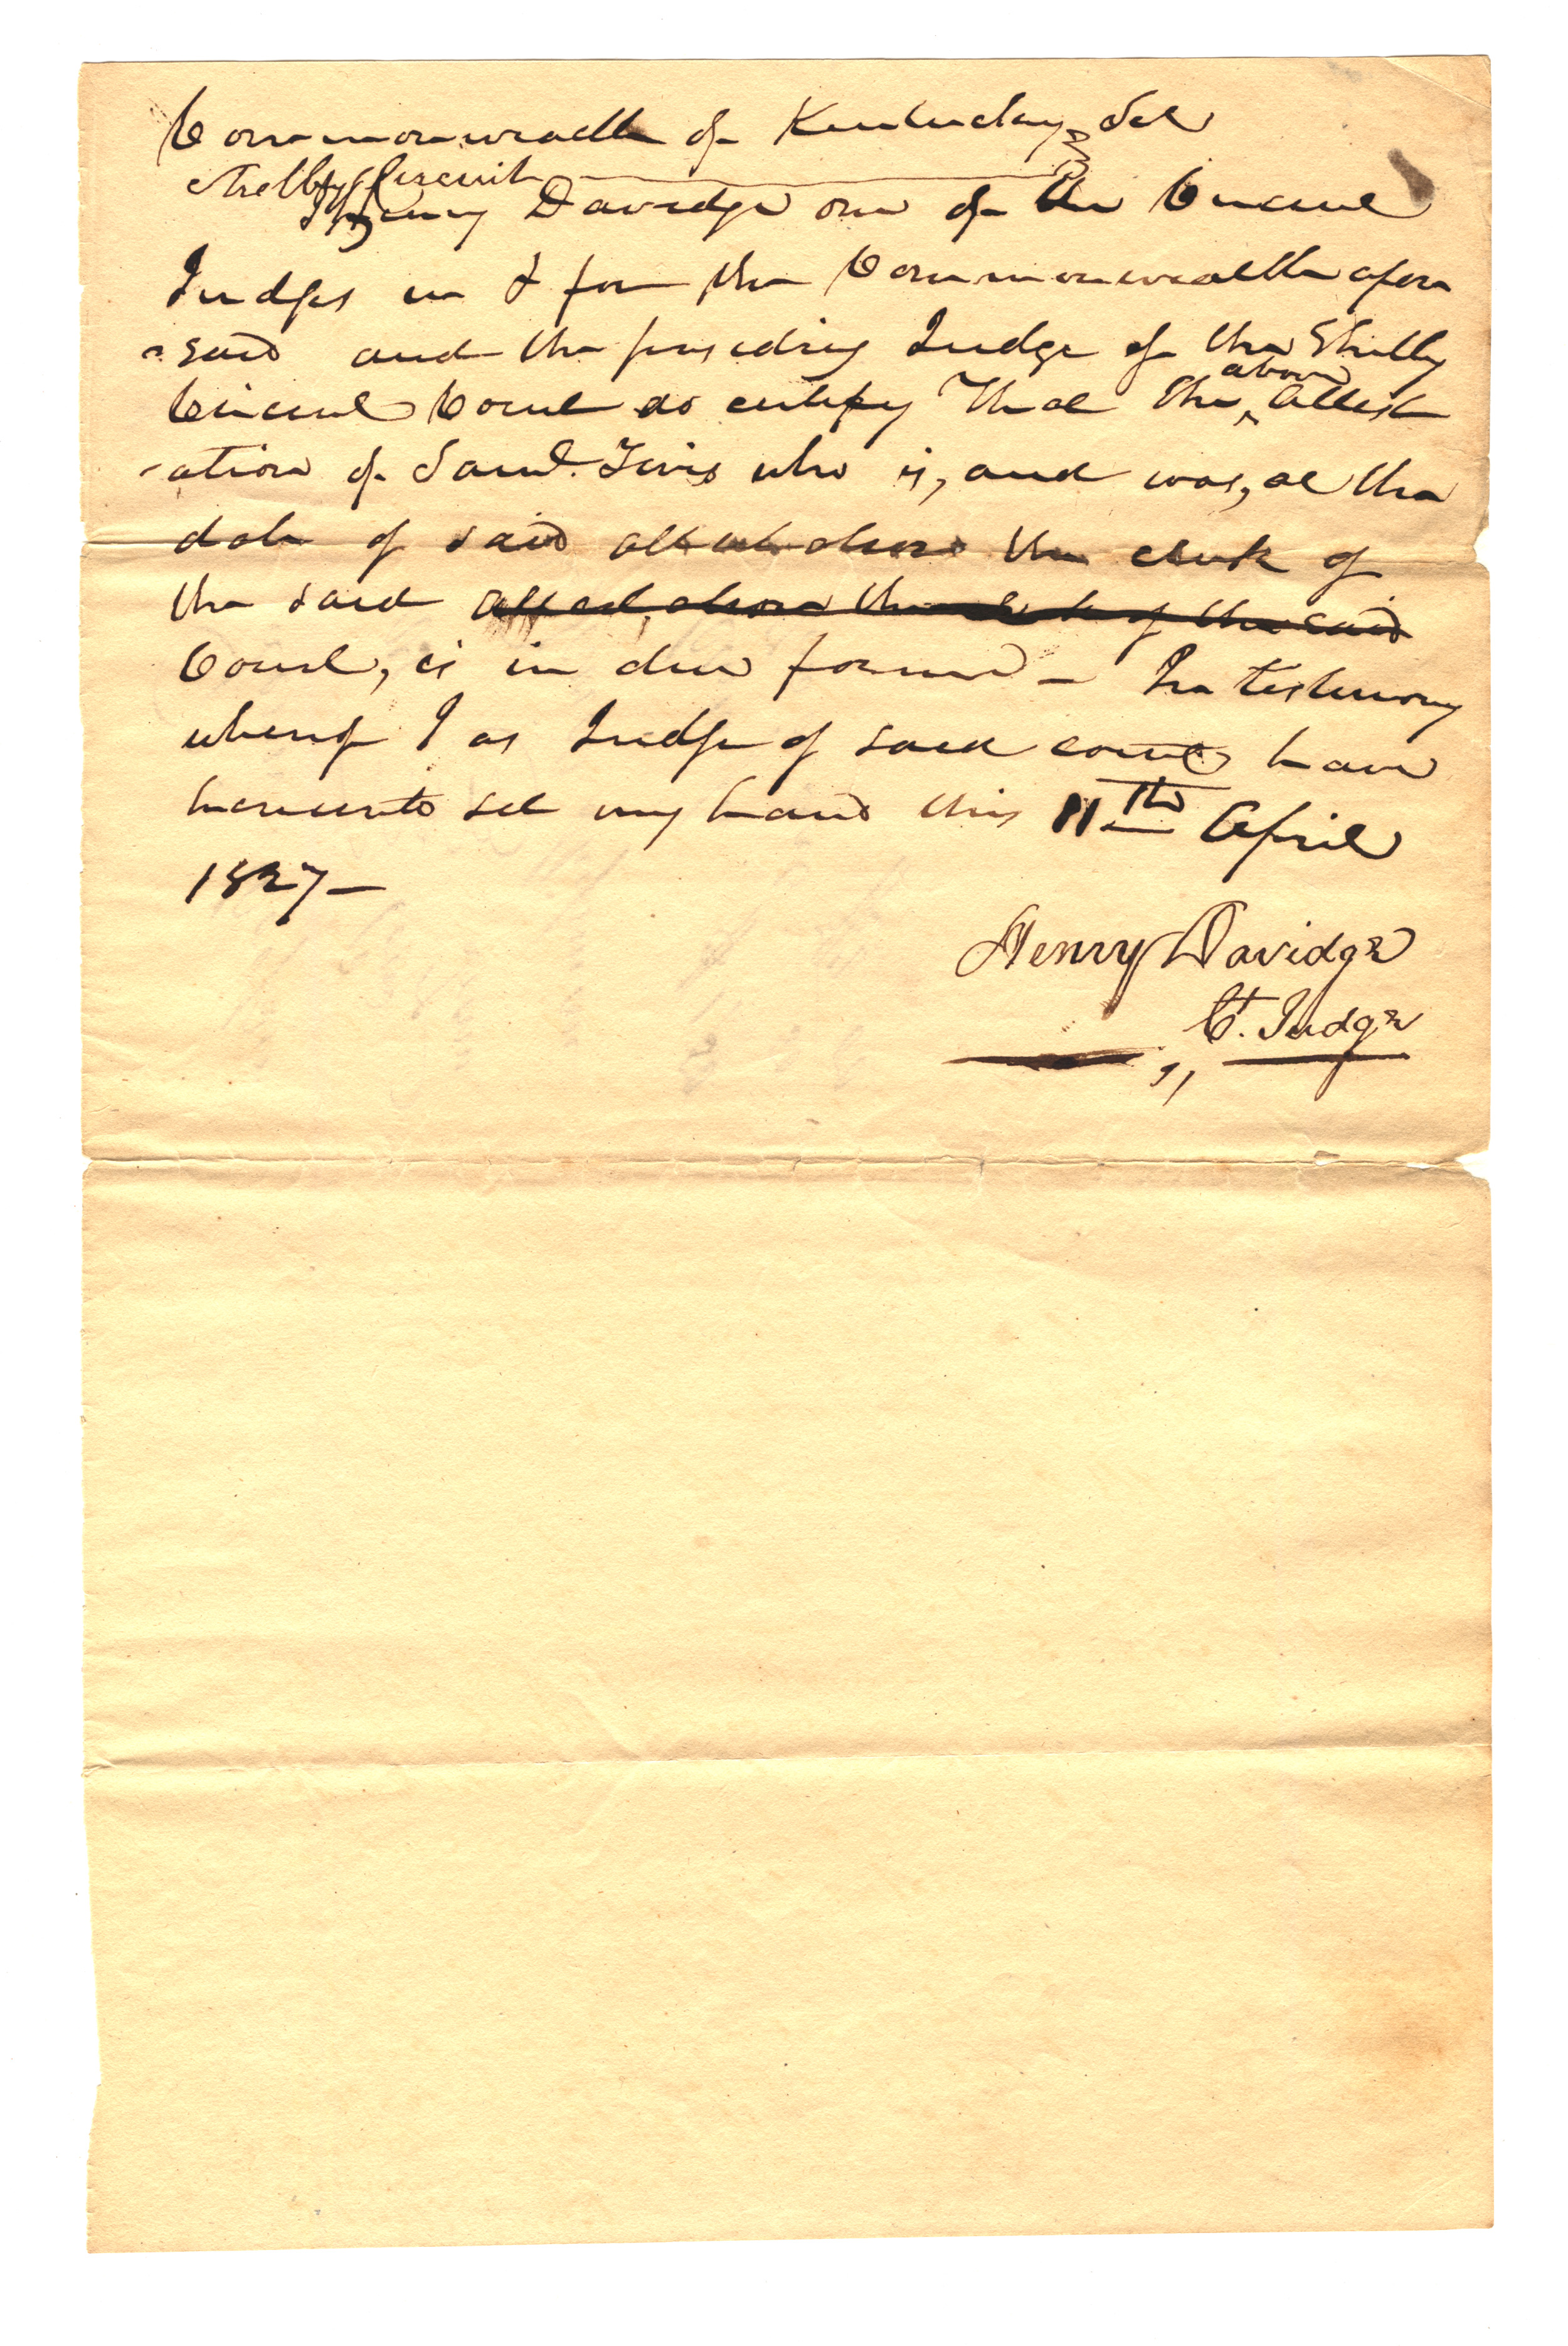 Commonwealth of Kentucky Sct
Shelby Circuit
I Henry Davidge one of the Circuit
Judges in & for the Commonwealth afore
-said and the presiding Judge of the Shelby
Circuit Court do certify That the above Attest
-ation of Saml. Tevis who is, and was, at the
date of said attestation the clerk of
the said attestation the clerk of the said
Court, is in due form - In testimony
whereof I as Judge of said court have
hereunto set my hand this 11th April
1827-
Henry Davidge
Ct. Judge